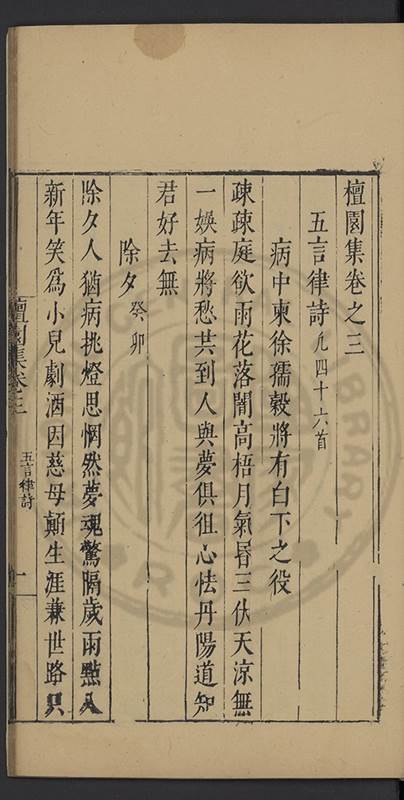 檀園集卷之三
五言律詩 凡四十六首
病中柬徐孺穀將有白下之役
疎疎庭欲雨花落闇高梧月氣昬三伏天涼無
一娛病將愁共到人與夢俱徂心怯丹陽道知
君好去無
除夕 癸卯
除夕人猶病挑燈思惘然夢魂驚隔歲雨點入
新年笑爲小兒劇酒因慈母顛生涯兼世路只
檀園集卷三
五言律詩
一